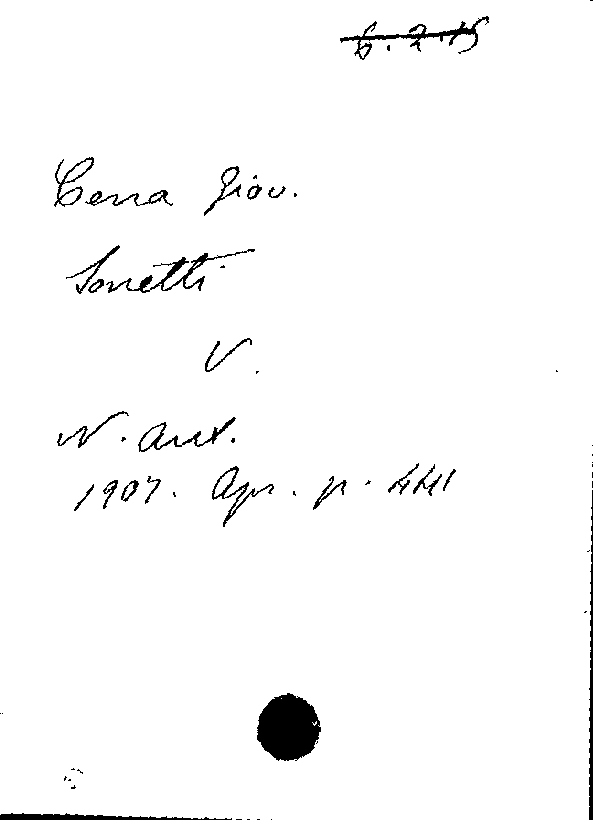 6.2.15
Cena Giov.
Sonetti
V.
N. Ant.
1907. Apr. p. 441